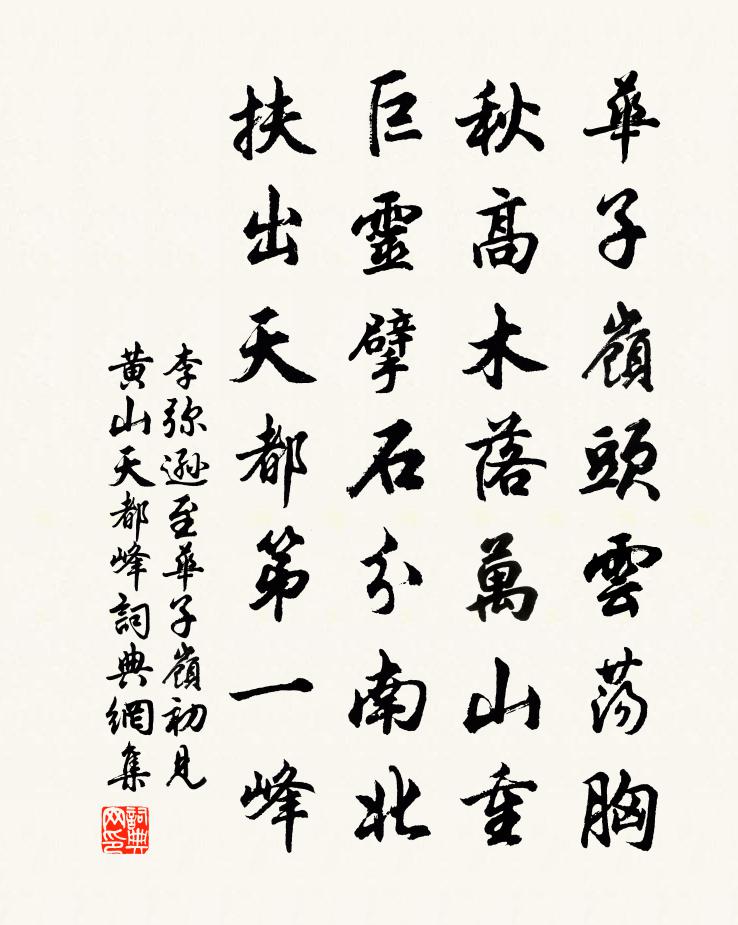 華子嶺頭雲蕩胸
秋高木落萬山重
巨靈擘石分南北
扶出天都第一峰
李弥遜至華子嶺初見
黄山天都峰詞典網集
詞典
网印